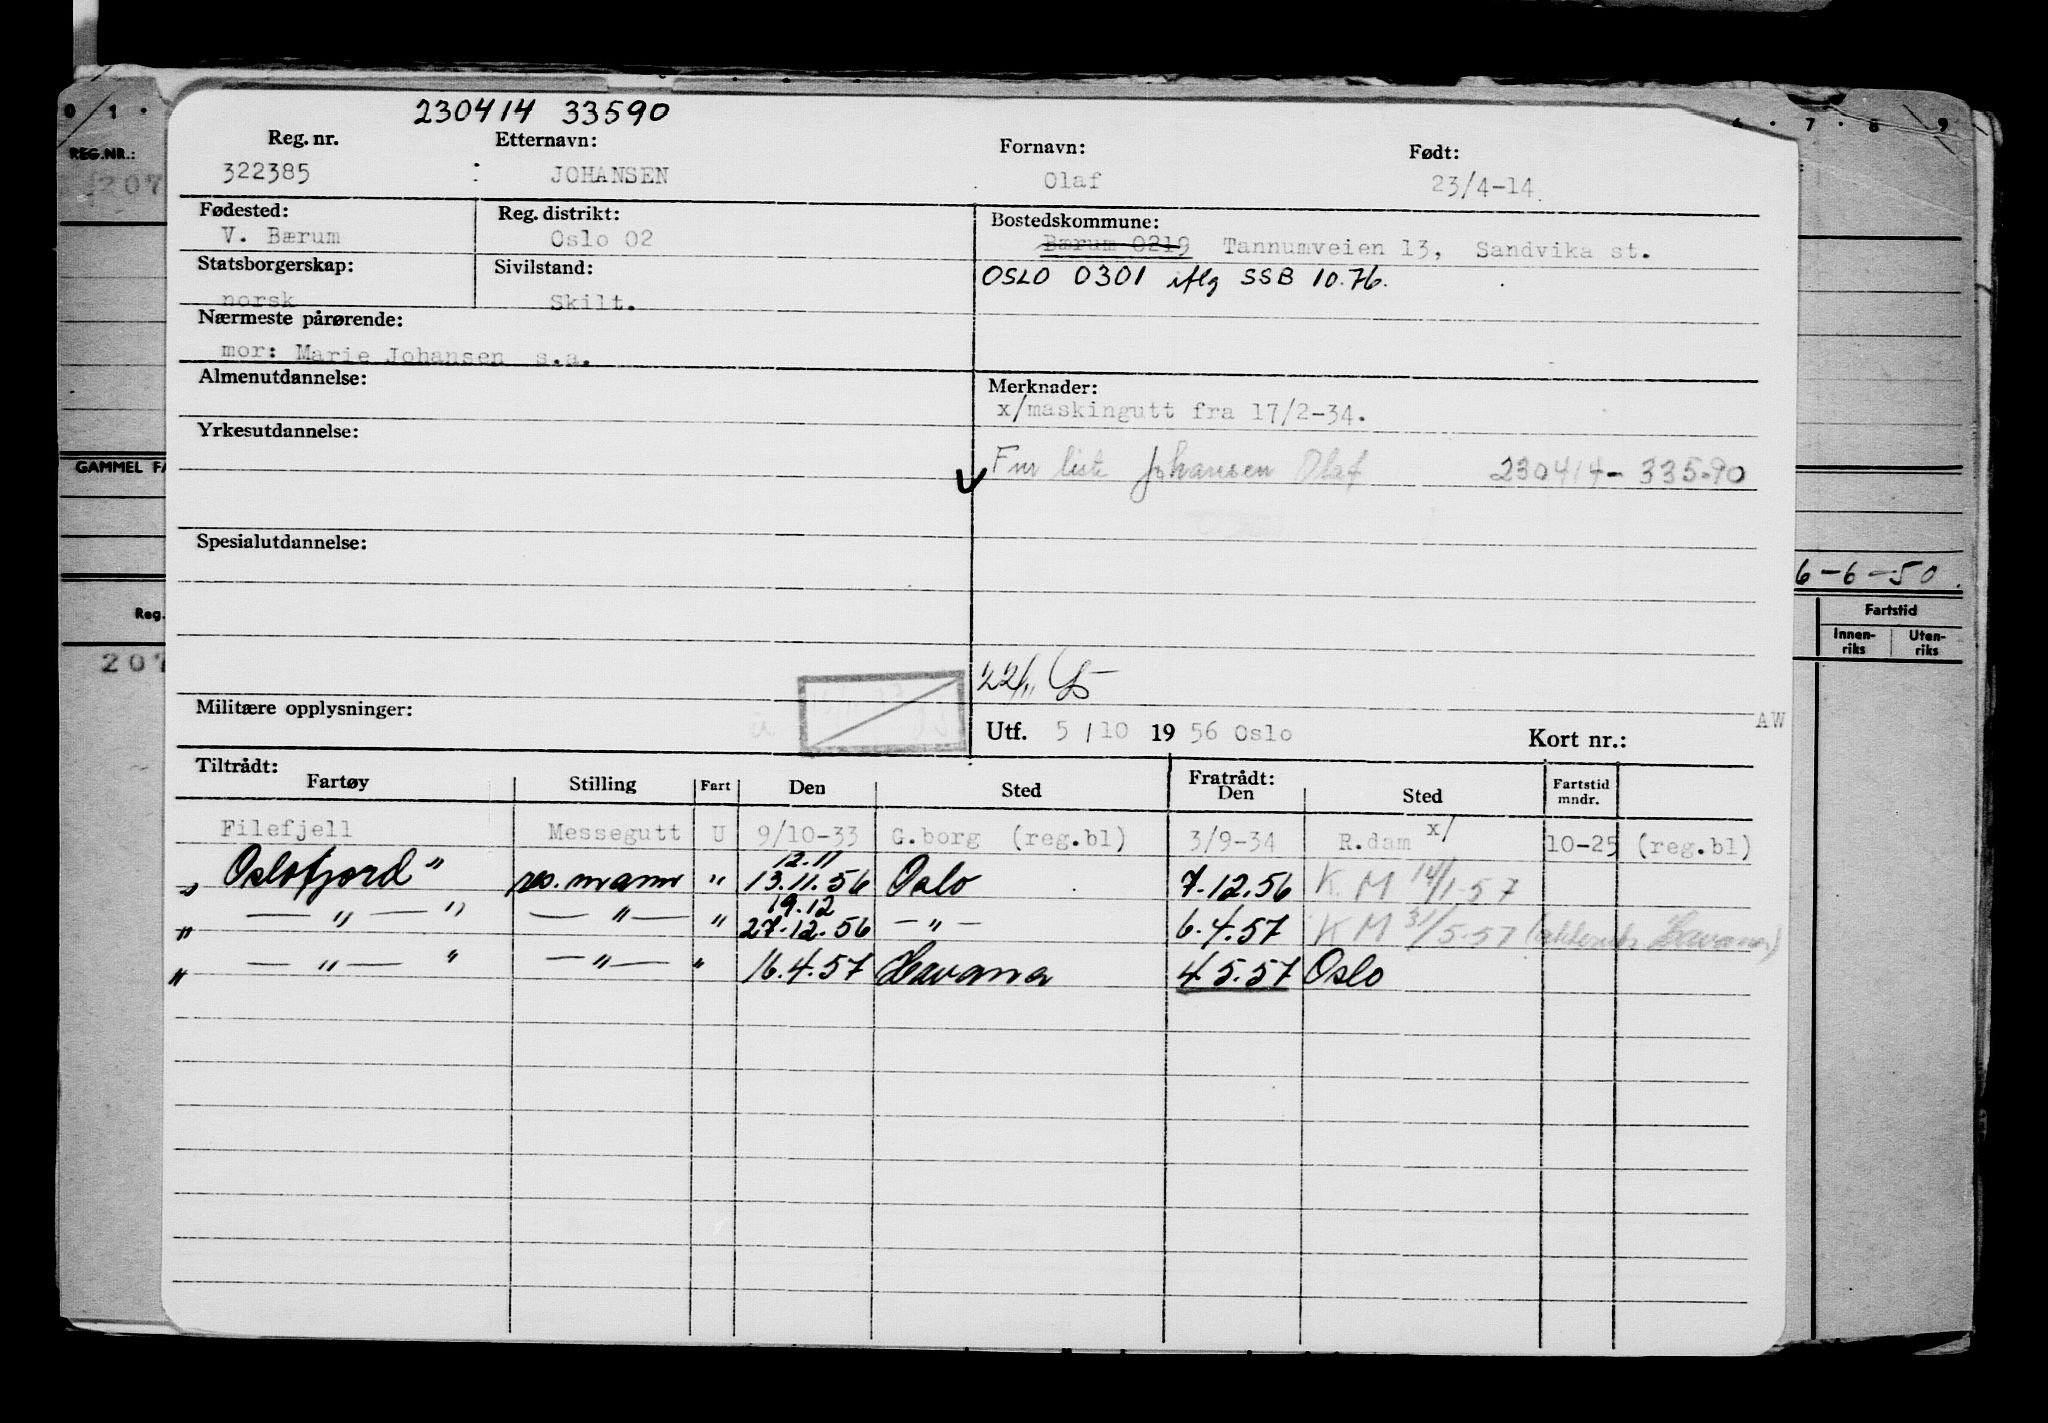 230414 33590
Reg. nr. Etternavn: Fornavn: Født:
322385 : JOHANSEN Olaf 23/4-14
Fødested: Reg. distrikt: Bostedskommune:
V. Bærum Oslo 02 Bærum 0219 Tannumveien 13, Sandvika st.
Statsborgerskap: Sivilstand: OSLO 0301 iflg SSB 10.76.
norsk Skilt.
Nærmeste pårørende:
mor: Marie Johansen s.a.
Almenutdannelse: Merknader:
x/maskingutt fra 17/2-34.
Yrkesutdannelse:
Fnr liste Johansen Olaf 230414-33590
Spesialutdannelse:
22/11
Militære opplysninger:
AW
Utf. 5/10 1956 Oslo Kort nr.:
Tiltrådt: Fratrådt:
Fartøy Stilling Fart Den Sted Den Sted Fartstid mndr.
Filefjell Messegutt U 9/10-33 G.borg (reg.bl) 3/9-34 R.dam x/ 10-25 (reg.bl)
12.11
" Oslofjord" res. mann " 13.11.56 Oslo 7.12.56 K. M 14/1-57
19.12
" — " — " — " — " 27.12.56 — " — 6.4.57 K M 31/5-57 Havana)
" — " — " — " — " 16.4.57 Havana 4.5.57 Oslo
0 1 . . 7 . 8 9
REG.NR.:
207
GAMMEL FA
6-6-50.
Reg. Fartstid
Innen-riks Uten-riks
207